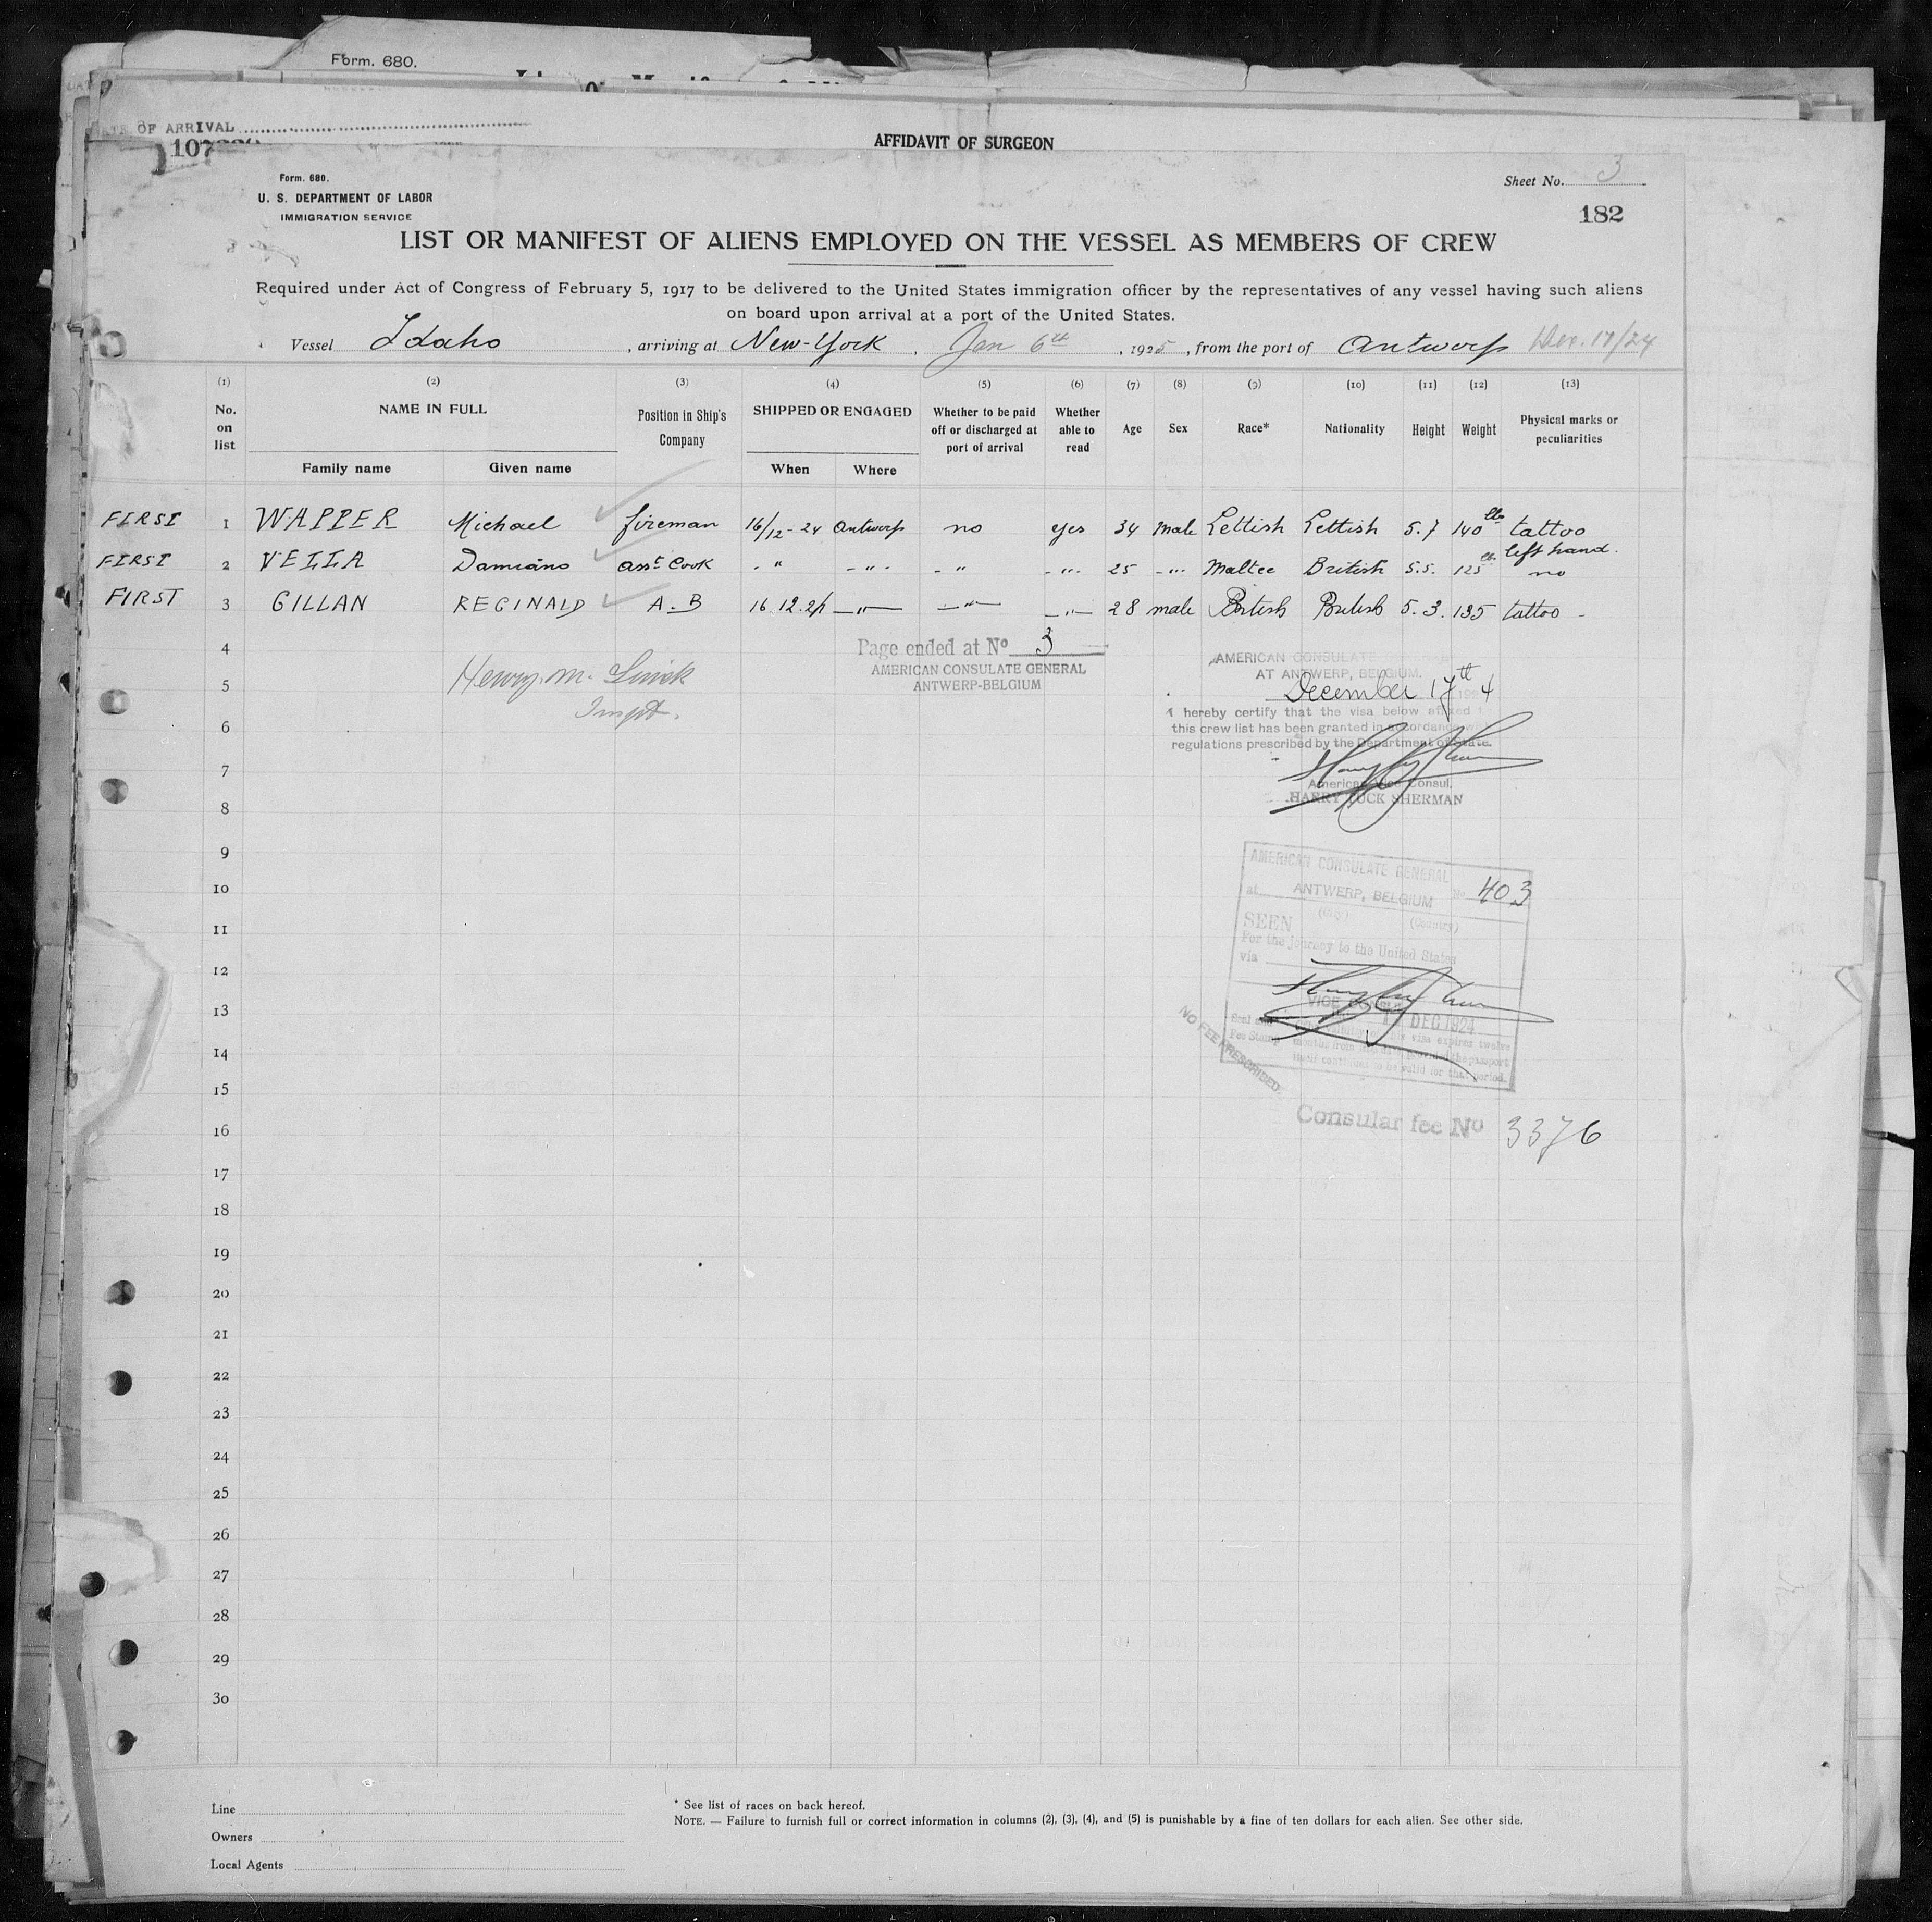 Form. 680.
DATE OF ARRIVAL
AFFIDAVIT OF SURGEON
Form. 680.
U. S. DEPARTMENT OF LABOR
IMMIGRATION SERVICE
Sheet No. 3
182
LIST OR MANIFEST OF ALIENS EMPLOYED ON THE VESSEL AS MEMBERS OF CREW
Required under Act of Congress of February 5, 1917 to be delivered to the United States immigration officer by the representatives of any vessel having such aliens
on board upon arrival at a port of the United States.
Vessel Idaho, arriving at New-York, Jan 6th, 1925, from the port of Antwerp Dec. 17/24
(1) (2) (3) (4) (5) (6) (7) (8) (9) (10) (11) (12) (13)
No. on list NAME IN FULL Family name Given name Position in Ship's Company SHIPPED OR ENGAGED When Where Whether to be paid off or discharged at port of arrival Whether able to read Age Sex Race* Nationality Height Weight Physical marks or peculiarities
FIRST 1 WAPPER Michael fireman 16/12-24 Antwerp no yes 34 Male Lettish Lettish 5.7 140 lbs tattoo left hand.
FIRST 2 VELLA Damiano Asst Cook - " - " - - " - " - 25 - " - Maltee British 5.5. 125 no
FIRST 3 GILLAN REGINALD A.B 16.12.24 - " - - " - - " - 28 male British British 5.3. 135 tattoo -
4
Page ended at No 3
AMERICAN CONSULATE GENERAL
ANTWERP-BELGIUM
5
Henry M.
AMERICAN CONSULATE
AT ANTWERP, BELGIUM.
December 17th 4
I hereby certify that the visa below affixed
this crew list has been granted in accordance
regulations prescribed by the Department of State.
American Vice Consul,
HARRY TUCK SHERMAN
6
7
8
9
10
11
12
13
14
15
16
17
18
19
20
21
22
23
24
25
26
27
28
29
30
AMERICAN CONSULATE GENERAL
at ANTWERP, BELGIUM No 403
(City) (Country)
SEEN
For the journey to the United States
via
VICE CONSUL
DEC 1924
NO FEE PRESCRIBED.
Consular fee No 3376
Line
Owners
Local Agents
* See list of races on back hereof.
NOTE. — Failure to furnish full or correct information in columns (2), (3), (4), and (5) is punishable by a fine of ten dollars for each alien. See other side.